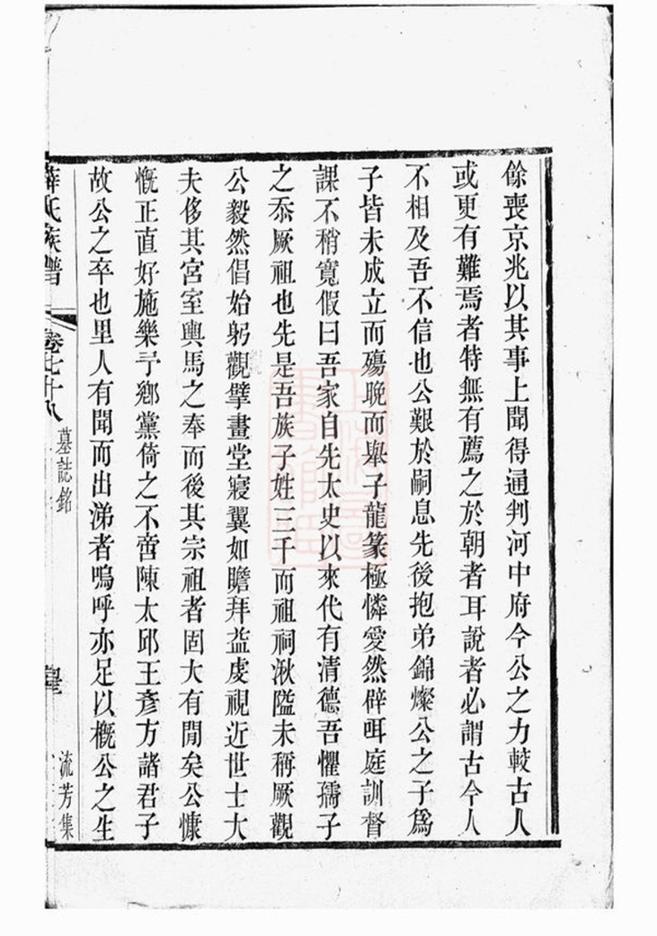 餘喪京兆以其事上聞得通判河中府今公之力較古人
或更有難焉者特無有薦之於朝者耳說者必謂古今人
不相及吾不信也公艱於嗣息先後抱弟錦燦公之子為
子皆未成立而殤晚而舉子龍篆極憐愛然辟咡庭訓督
課不稍寬假曰吾家自先太史以來代有清德吾懼孺子
之忝厥祖也先是吾族子姓三千而祖祠湫隘未稱厥觀
公毅然倡始躬觀擘畫堂寢翼如瞻拜益虔視近世士大
夫侈其宮室輿馬之奉而後其宗祖者固大有閒矣公慷
慨正直好施樂予鄉黨倚之不啻陳太邱王彥方諸君子
故公之卒也里人有聞而出涕者嗚呼亦足以概公之生
薛氏族譜 卷七十八 墓誌銘 流芳集